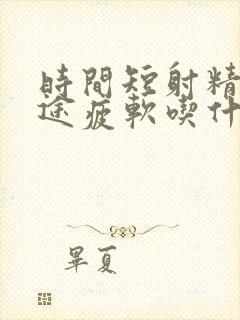 時間短射精
途疲軟喫什
畢夏